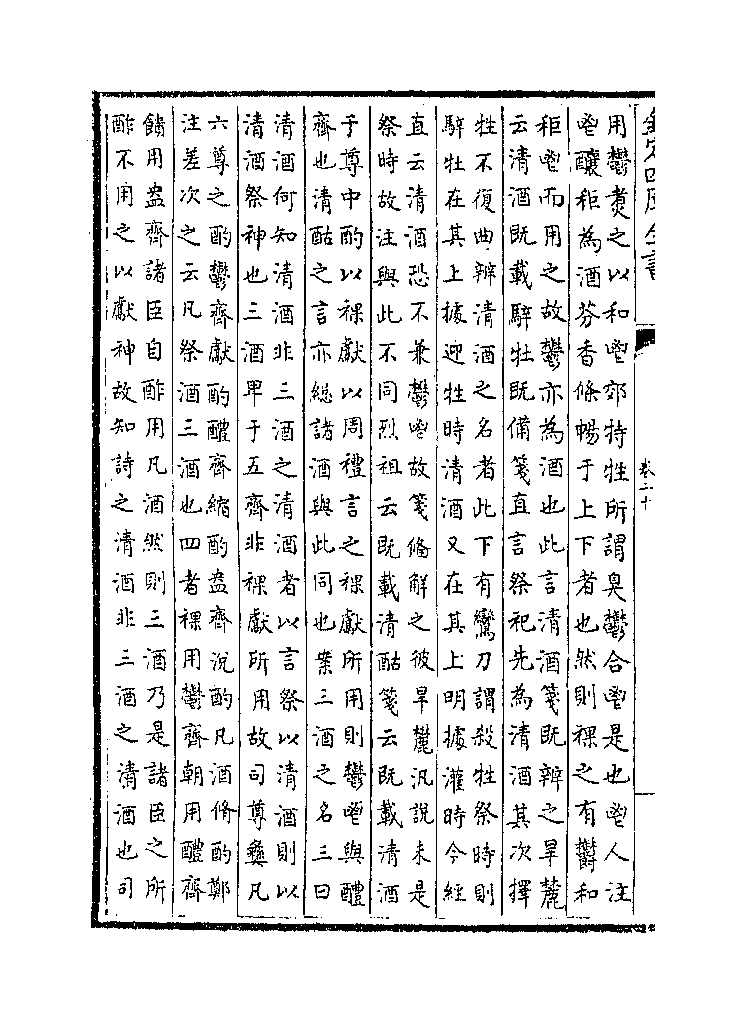 欽定四庫全書
卷二十
用鬱煑之以和鬯郊特牲所謂臭鬱合鬯是也鬯人注
鬯釀秬為酒芬香條暢于上下者也然則祼之有鬱和
秬鬯而用之故鬱亦為酒也此言清酒箋既辨之旱麓
云清酒既載騂牡既備箋直言祭祀先為清酒其次擇
牲不復曲辨清酒之名者此下有鸞刀謂殺牲祭時則
騂牡在其上據迎牲時清酒又在其上明據灌時今經
直云清酒恐不兼鬱鬯故箋備解之彼旱麓汎說未是
祭時故注與此不同烈祖云既載清酤箋云既載清酒
于尊中酌以祼獻以周禮言之祼獻所用則鬱鬯與醴
齊也清酤之言亦緫諸酒與此同也案三酒之名三曰
清酒何知清酒非三酒之清酒者以言祭以清酒則以
清酒祭神也三酒卑于五齊非祼獻所用故司尊彝凡
六尊之酌鬱齊獻酌醴齊縮酌盎齊涚酌凡酒脩酌鄭
注差次之云凡祭酒三酒也四者祼用鬱齊朝用醴齊
饋用盎齊諸臣自酢用凡酒然則三酒乃是諸臣之所
酢不用之以獻神故知詩之清酒非三酒之清酒也司